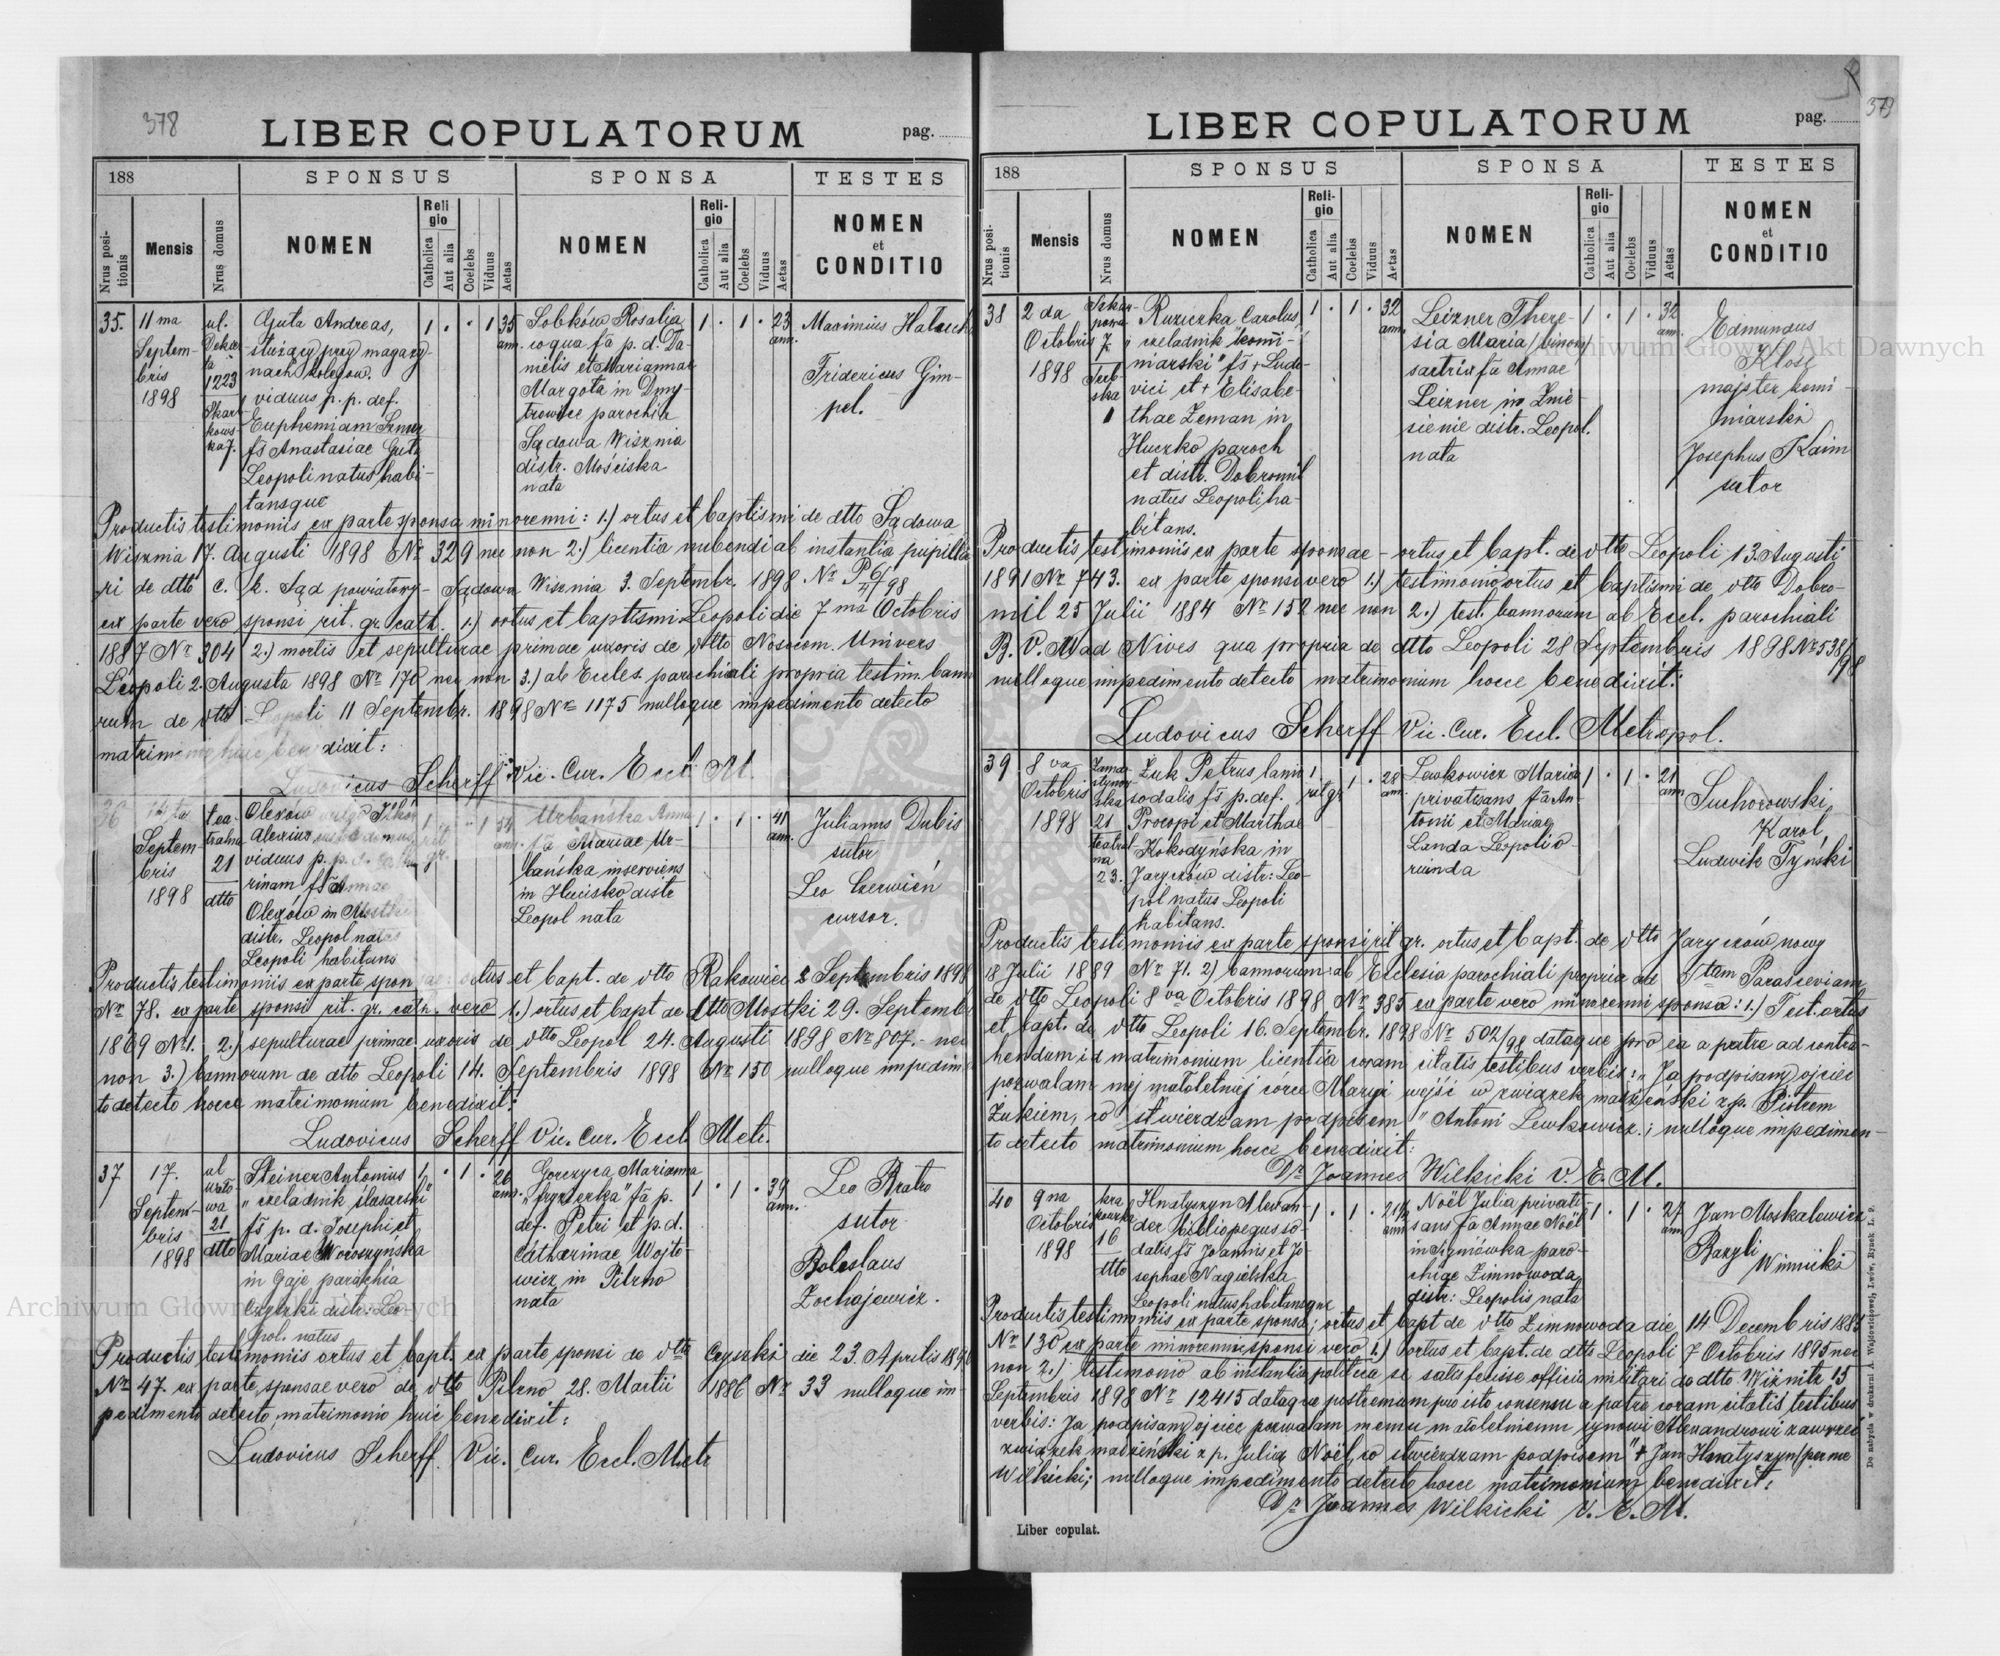 378
LIBER COPULATORUM
pag.
188
SPONSUS
SPONSA
TESTES
Nrus positionis
Mensis
Nrus domus
NOMEN
Religio
Catholica
Aut alia
Coelebs
Viduus
Aetas
NOMEN
Religio
Catholica
Aut alia
Coelebs
Viduus
Aetas
NOMEN
et
CONDITIO
35.
11 ma
Septem-
bris
1898
ul.
1223
7.
Guta Andreas,
służący przy magazy-
nach kolejow.
viduus p. p. def.
Euphemiam
fs Anastasiae Guta
Leopoli natus habi-
tansque
1 . . 1 35 ann.
Sobków Rosalia
coqua fa p. d. Da-
nielis et Mariannae
Margota in Dmy-
trowice parochia
Sądowa Wisznia
distr. Mościska
nata
1 . 1 . 23 ann.
Maximius
Fridericus Gim-
pel.
Productis testimoniis ex parte sponsa minorenni: 1.) ortus et baptismi de dtto Sądowa
Wisznia 17. Augusti 1898 Nr 329 nec non 2.) licentia nubendi ab instantia pupilla-
ri de dtto c. k. Sąd powiatowy - Sądowa Wisznia 3. Septembr. 1898 Nr P 6/98
ex parte vero sponsi rit. gr. cath. 1.) ortus et baptismi Leopoli die 7 ma Octobris
1887 Nr 304 2.) mortis et sepulturae primae uxoris de dtto Nosocom. Univers
Leopoli 2. Augusta 1898 Nr 170 nec non 3.) ab Eccles. parochiali propria testim. bann
rum de dtto Leopoli 11 Septembr. 1898 Nr 1175 nulloque impedimento detecto
matrimonio huic benedixit:
Ludovicus Scherff Vic. Cur. Eccl. M.
36
14 ta
Septem-
bris
1898
tea-
tralna
21
dtto
Olexów
Alexius
viduus p. p. d.
rinam fs Annae
Olexów in Mostki
distr. Leopol natus
Leopoli habitans
1 54 ann.
Urbańska Anna
fa Mariae Ur-
bańska inserviens
in Hucisko distr
Leopol nata
1 . 1 . 41 ann.
Julianus Dubis
sutor
Leo Czerwień
cursor.
Productis testimoniis ex parte sponsae: ortus et bapt. de dtto Rakowiec 2 Septembris 1898
Nr 78. ex parte sponsi rit. gr. cath. vero 1.) ortus et bapt de dtto Mostki 29. Septemb
1869 Nr 1. 2.) sepulturae primae uxoris de dtto Leopol 24. Augusti 1898 Nr 807. - nec
non 3.) bannorum de dtto Leopoli 14. Septembris 1898 Nr 150 nulloque impedimen
to detecto hocce matrimonium benedixit:
Ludovicus Scherff Vic. Cur. Eccl. Metr.
37
17.
Septem-
bris
1898
ul
21
dtto
Steiner Antonius
"czeladnik ślusarski"
fs p. d. Josephi et
Mariae Woroszyńska
in Gaje parochia
Czyszki distr: Leo-
pol. natus
1 . 1 . 26 ann.
Gorczyca Marianna
"fryzjerka" fa p.
def. Petri et p. d.
Catharinae Wojto-
wicz in Pilzno
nata
1 . 1 . 39 ann.
Leo Bratro
sutor
Boleslaus
Zochajewicz.
Productis testimoniis ortus et bapt. ex parte sponsi de dtto Czyszki die 23. Aprilis
Nr 47. ex parte sponsae vero de dtto Pilzno 28. Martii 1886 Nr 33 nulloque im-
pedimento detecto matrimonio huic benedixit:
Ludovicus Scherff. Vic. Cur. Eccl. Metr
379
LIBER COPULATORUM
pag.
188
SPONSUS
SPONSA
TESTES
Nrus positionis
Mensis
Nrus domus
NOMEN
Religio
Catholica
Aut alia
Coelebs
Viduus
Aetas
NOMEN
Religio
Catholica
Aut alia
Coelebs
Viduus
Aetas
NOMEN
et
CONDITIO
38
2 da
Octobris
1898
7
Ruziczka Carolus
"czeladnik komi-
niarski" fs + Ludo-
vici et + Elisabe-
thae Zeman in
Huczko paroch
et distr. Dobromil
natus Leopoli ha-
bitans.
1 . 1 . 32 ann.
Leizner There-
sia Maria /binom/
sartrix fa Annae
Leizner in Znie-
sienie distr. Leopol.
nata
1 . 1 . 32 ann.
Edmundus
Klosz
majster komi-
niarski
Josephus Kaim
sutor
Productis testimoniis ex parte sponsae - ortus et bapt. de dtto Leopoli 13 Augusti
1891 Nr 743. ex parte sponsi vero 1.) testimonio ortus et baptismi de dtto Dobro-
mil 25 Julii 1884 Nr 152 nec non 2.) test. bannorum ab Eccl. parochiali
B. V. Mad Nives qua propria de dtto Leopoli 28 Septembris 1898 Nr 538/98
nulloque impedimento detecto matrimonium hocce benedixit:
Ludovicus Scherff Vic. Cur. Eccl. Metropol.
39
8 va
Octobris
1898
Zamar-
stynow-
ska
21
teatral-
na
23.
Żuk Petrus lanio
sodalis fs p. def.
Procopi et Marthae
Kokodyńska in
Jaryczów distr: Leo-
pol natus Leopoli
habitans.
1 rit gr . 1 . 28 ann.
Lewkowicz Maria
privatisans fa An-
tonii et Mariae
Landa Leopoli o-
riunda
1 . 1 . 21 ann.
Suchorowski
Karol,
Ludwik Tyński
Productis testimoniis ex parte sponsi rit gr. ortus et bapt. de dtto Jaryczów nowy
18 Julii 1889 Nr 71. 2) bannorum ab Ecclesia parochiali propria ad Stam Parasceviam
de dtto Leopoli 8 va Octobris 1898 Nr 385 ex parte vero minorenni sponsa: 1.) Test. ortus
et bapt. de dtto Leopoli 16. Septembr. 1898 Nr 502/98 dataque pro ea a patre ad contra-
hendum id matrimonium licentia coram citatis testibus verbis: "Ja podpisany ojciec
pozwalam mej małoletniej córce Maryi wejść w związek małżeński z p. Piotrem
Żukiem, co stwierdzam podpisem" Antoni Lewkowicz.; nulloque impedimen-
to detecto matrimonium hocce benedixit:
Dr Joannes Wilkicki V. E. M.
40
9 na
Octobris
1898
16
dtto
Hnatyszyn Alexan-
der bibliopegus so-
dalis fs Joannis et Jo-
sephae Nagielska
Leopoli natus habitansque
1 . 1 . 21 1/2 ann
Noël Julia privati-
sans fa Annae Noël
in Sygniówka paro-
chiae Zimnowoda
distr: Leopolis nata
1 . 1 . 27 ann
Jan Moskalewicz
Bazyli
Winnicki
Productis testimoniis ex parte sponsa; ortus et bapt de dtto Zimnowoda die 14 Decembris
Nr 130 ex parte minorenni sponsi vero 1.) ortus et bapt. de dtto Leopoli 7 Octobris 1895 nec
non 2.) testimonio ab instantia politica se satisfecisse officio militari de dtto Wiżnitz 15
Septembris 1898 Nr 12415 dataque postremam pro isto consensu a patre coram citatis testibus
verbis: Ja podpisany ojciec pozwalam memu małoletniemu synowi Alexandrowi zawrzeć
związek małżeński z p. Julią Noël, co stwierdzam podpisem" + Jan Hnatyszyn /per me
Wilkicki; nulloque impedimento detecto hocce matrimonium benedixit:
Dr Joannes Wilkicki V. E. M.
Liber copulat.
Do nabycia w drukarni A. Wajdowiczowej, Lwów, Rynek L. 9.
Archiwum Główne Akt Dawnych
Archiwum Główne Akt Dawnych